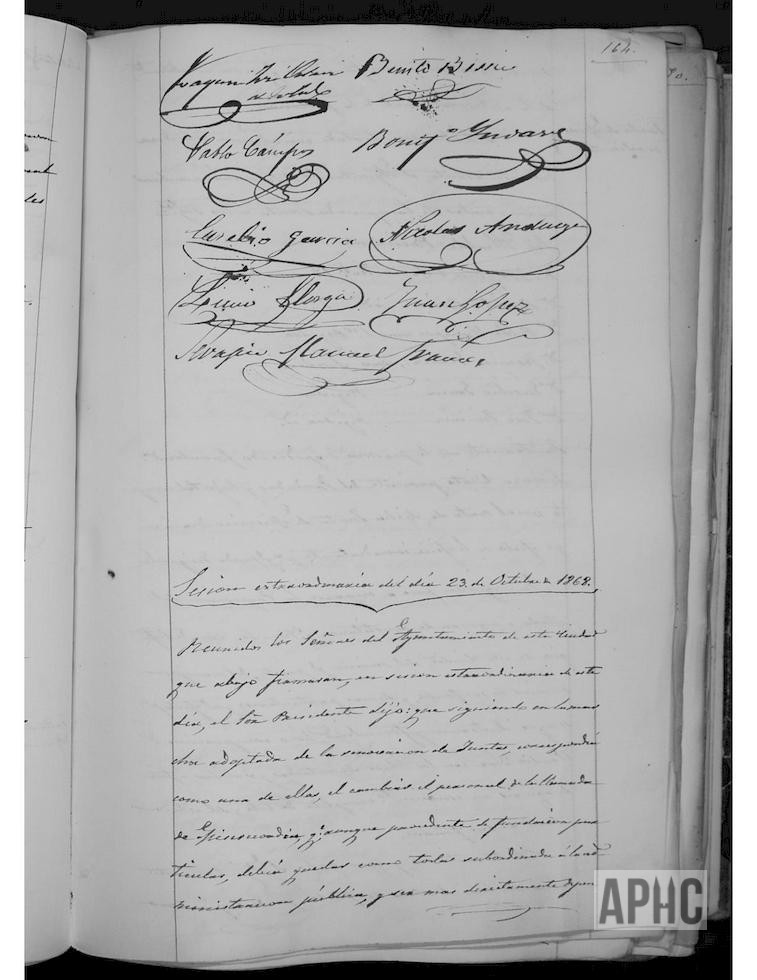 164.
Joaquin
Benito
Pablo Cámpos
Eusebio Garcia
Nicolas Anduega
Juan Lopez
Manuel
Sesion extraordinaria del dia 23. de Octubre de 1868.
Reunidos los Señores del Ayuntamiento de esta Ciudad
que abajo firmaran, en sesion estraordinaria de este
dia, el Sõr Presidente dijo: que siguiendo en la mar
cha adoptada de la renovacion de Juntas, correspondia
como una de ellas, el cambiar el personal de la llamada
de Misericordia, q.e aunque procedente de fundacion par
ticular, debia quedar como todas subordinada á la ad
ministracion pública, y ser mas directamente depen
APHC